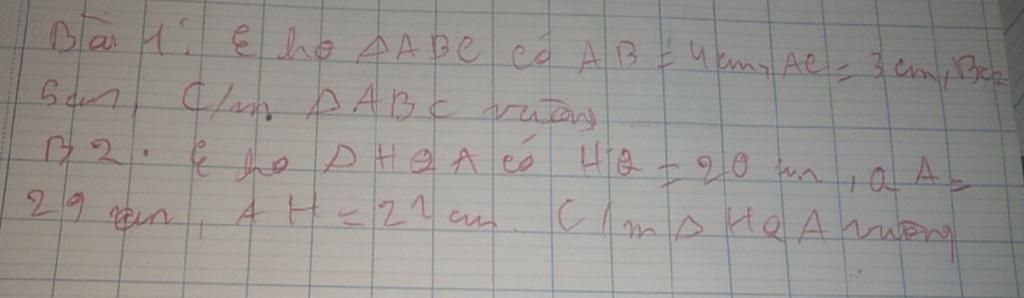 Bài 1: Cho ΔABC có AB = 4cm, AC = 3cm, BC=
5cm, C/m ΔABC vuông
B2. Cho ΔHQA có HQ = 20 cm, QA =
29 cm, AH = 21 cm. C/m ΔHQA vuông